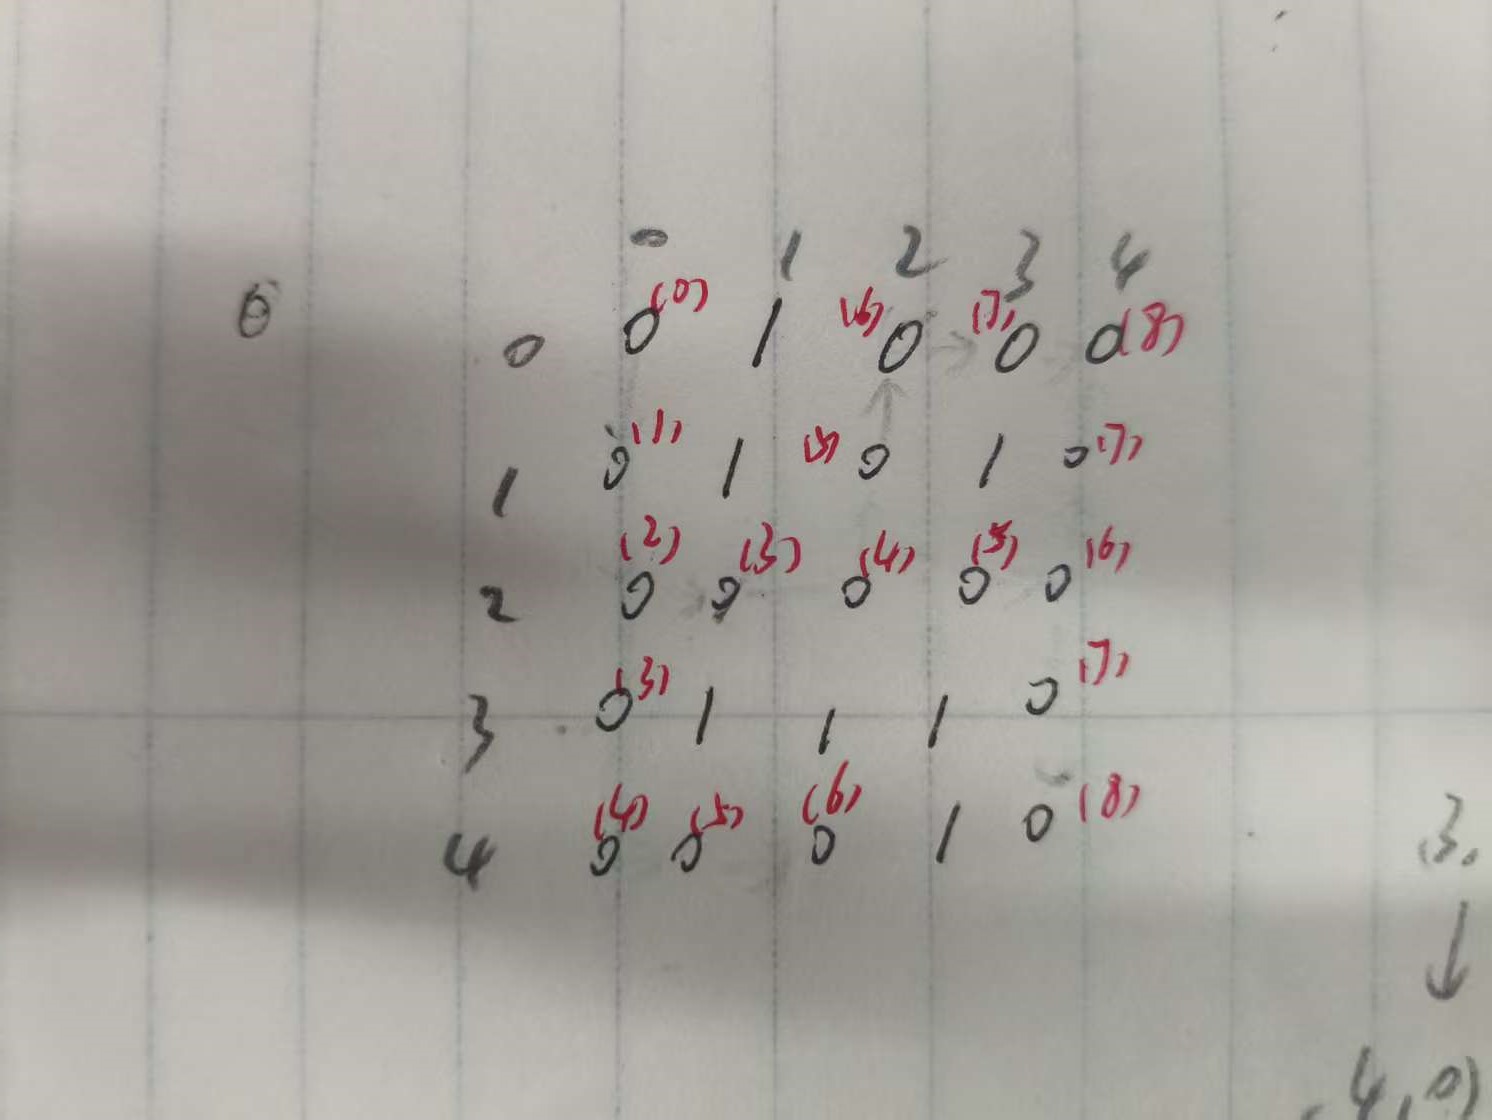 0 1 2 3 4
0 0(0) 1 (6)0 (7)0 0(8)
1 0(1) 1 (5)0 1 0(7)
2 0(2) 0(3) 0(4) 0(5) 0(6)
3 0(3) 1 1 1 0(7)
4 0(4) 0(5) 0(6) 1 0(8)
3.
↓
4,0)